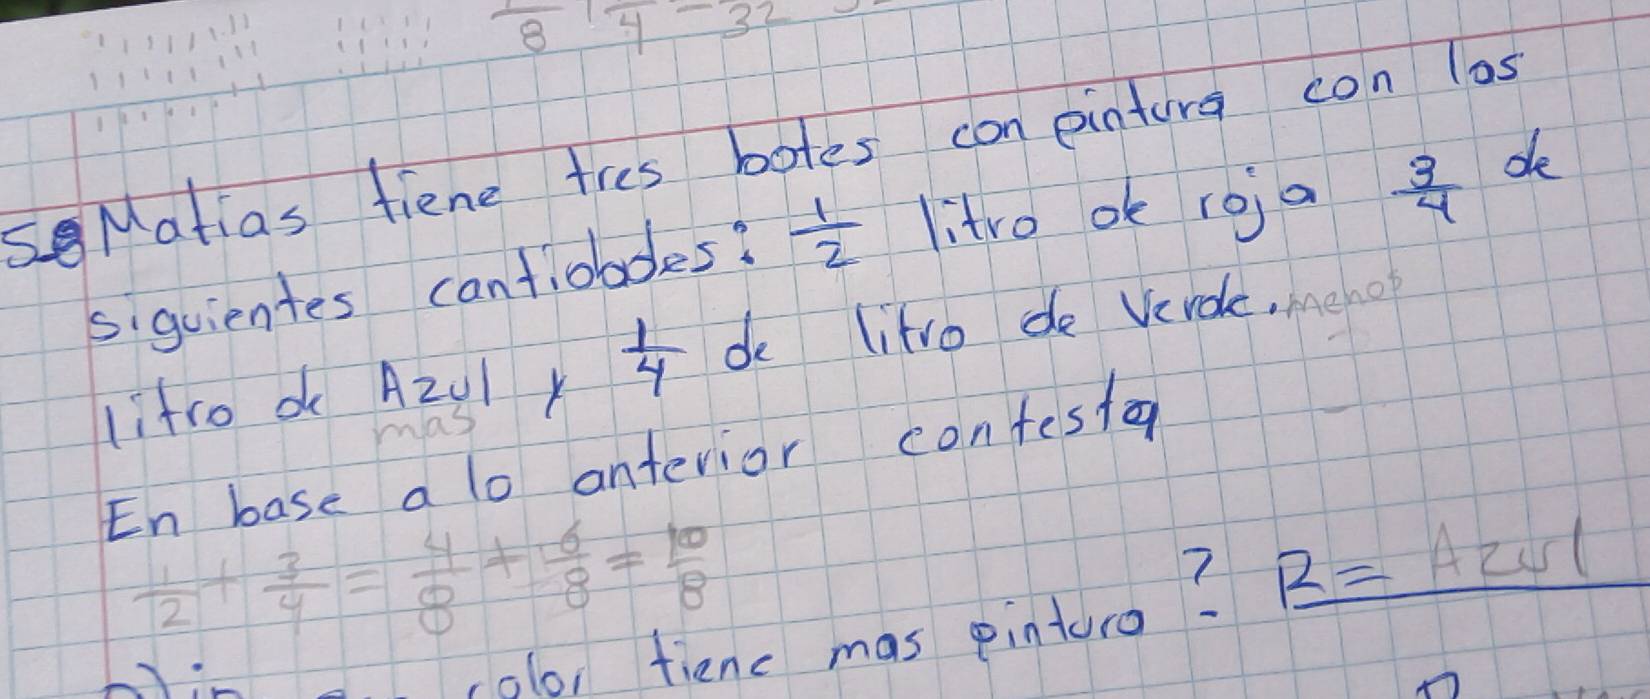 8 4 32
5. Matias tiene tres botes con pintura con las
siguientes cantidades: 1/2 litro de roja 3/4 de
litro de Azul y 1/4 de litro de Verde. menos
mas
En base a lo anterior contesta
1/2 + 3/4 = 4/8 + 6/8 = 10/8
color tiene mas pintura? R= Azul